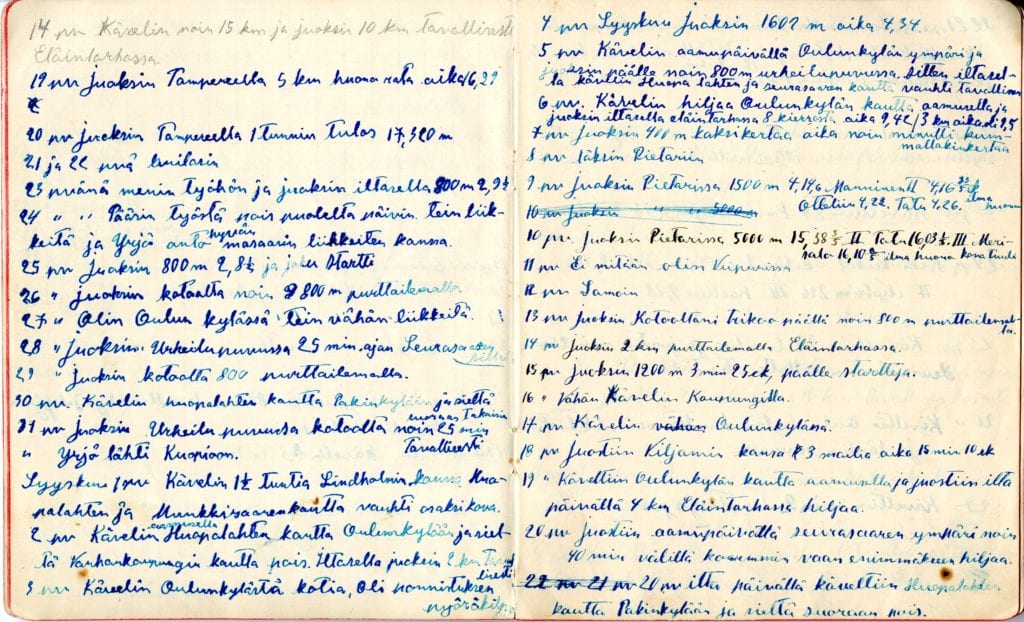 14 pv Kävelin noin 15 km ja juoksin 10 km Tavallisesti
Eläintarhassa
19 pv Juoksin Tampereella 5 km huono rata aika 16,29
20 pv Juoksin Tampereella 1 tunnin tulos 17,320 m
21 ja 22 pvä huilasin
23 pvänä menin työhön ja juoksin iltasella 800 m 2,9
24 " " Päärin työstä pois puolelta päivin. tein liik-
keitä ja Yrjö antoi hyvän masaarin liikkeiten kanssa.
25 pv Juoksin 800 m 2,8 ja Startti
26 " Juoksin kotoalta noin 800 m purttailemalla
27 " Olin Oulunkylässä tein vähän liikkeitä.
28 " Juoksin Urheilupuvussa 25 min. ajan Seurasaaren
29 " Juoksin kotoalta 800 purttailemalla.
30 pv. Kävelin huopalahten kautta Pakinkylään ja sieltä
suoraan Takaisin
31 pv Juoksin Urheilu puvussa kotoalta noin 25 min
Tavallisesti
" Yrjö lähti Kuopioon.
Syyskuu 1 pv Kävelin 1½ tuntia Lindholmin kanssa Huo-
palahten ja Munkkisaaren kautta vauhti osaksi kova.
2 pv Kävelin aamusella Huopalahten kautta Oulunkylään ja siel-
tä Vanhankaupungin kautta pois. Iltasella juoksin 2 km Taval-
lisesti
3 pv Kävelin Oulunkylästä kotia, Oli ponnistuksen
4 pv Syyskuu Juoksin 1602 m aika 4,34.
5 pv Kävelin aamupäivällä Oulunkylän ympäri ja
juoksin päälle noin 800 m urheilupuvussa. Sitten iltasel-
la käveltiin Huopalahten ja seurasaaren kautta vauhti tavallinen
6 pv. Kävelin hiljaa Oulunkylän kautta aamusella ja
juoksin iltasella eläintarhassa 8 kierrosta aika 9,42 / 3 km aika
7 pv Juoksin 400 m kaksikertaa aika noin minutti kum-
mallakinkertaa
8 pv läksin Pietariin
9 pv Juoksin Pietarissa 1500 m 4,14,6 Manninen II 4,16
Ottelin 4,22. Tatu 4,26.
10 pv Juoksin " " 5000 m
10 pv. Juoksin Pietarissa 5000 m 15,38 II Tatu 16,03 III Meri-
salo 16,10 ilma huono kova tuuli
11 pv Ei mitään olin Viipurissa
12 pv Samoin
13 pv Juoksin Kotoaltani trikoo päällä noin 800 m purttailemal-
la.
14 pv Juoksin 2 km purttailemalla Eläintarhassa.
15 pv Juoksin 1200 m 3 min 25 ek, päälle startteja.
16 " Vähän Kävelin Kaupungilla.
17 pv Kävelin vähän Oulunkylässä.
18 pv Juostiin Viljamin kanssa 3 mailia aika 15 min 10 ek
19 " Käveltiin Oulunkylän kautta aamusella ja juostiin ilta
päivällä 4 km Eläintarhassa hiljaa.
20 pv Juostiin aamupäivällä seurasaaren ympäri noin
40 min välillä kovemmin vaan enimmäkseen hiljaa.
22 pv 21 pv 20 pv ilta päivällä käveltiin Huopalahten
kautta Pakinkylään ja sieltä suoraan pois.